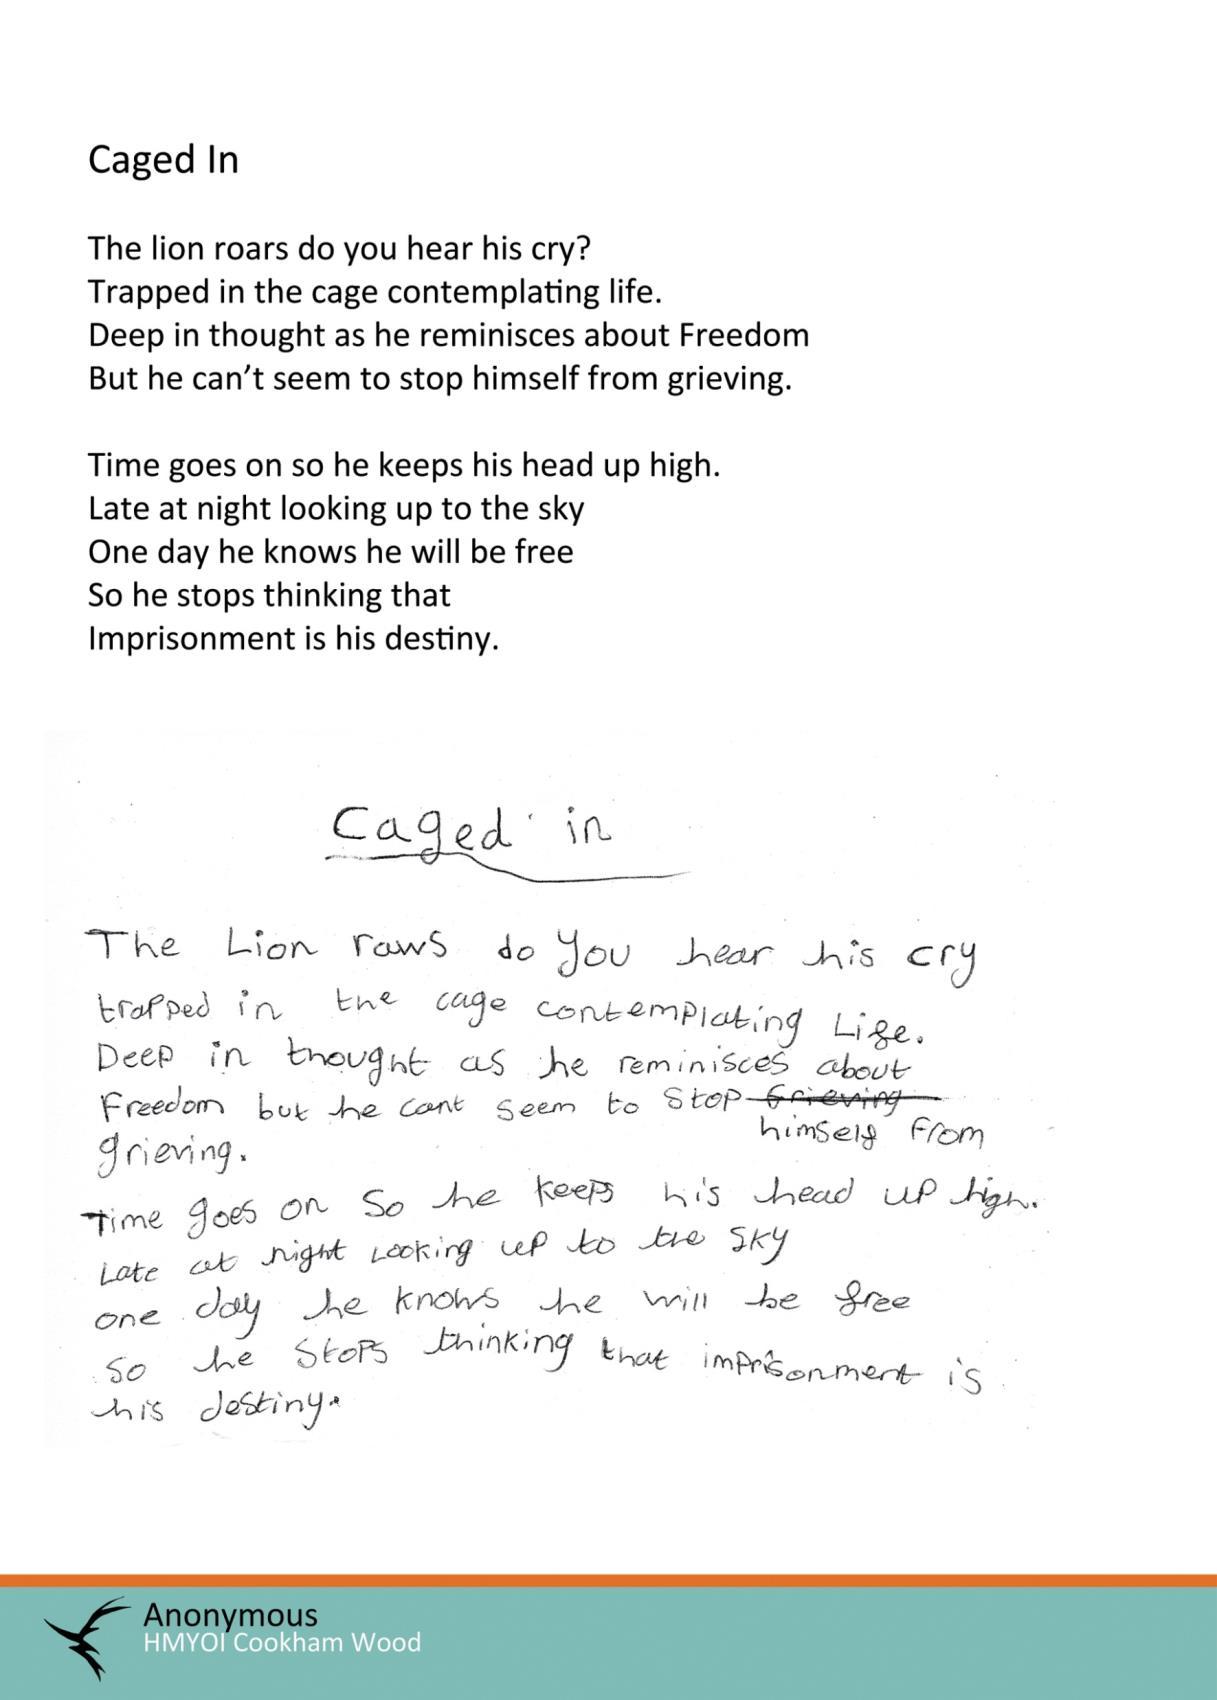 Caged In
The lion roars do you hear his cry?
Trapped in the cage contemplating life.
Deep in thought as he reminisces about Freedom
But he can’t seem to stop himself from grieving.
Time goes on so he keeps his head up high.
Late at night looking up to the sky
One day he knows he will be free
So he stops thinking that
Imprisonment is his destiny.
Caged in
The Lion raws do You hear his cry
trapped in the cage contemplating Life.
Deep in thought as he reminisces about
Freedom but he cant seem to stop Grieving
himself from
grieving.
Time goes on So he keeps his head up high.
Late at night Looking up to the sky
one day he knows he will be free
so he stops thinking that imprisonment is
his destiny.
Anonymous
HMYOI Cookham Wood